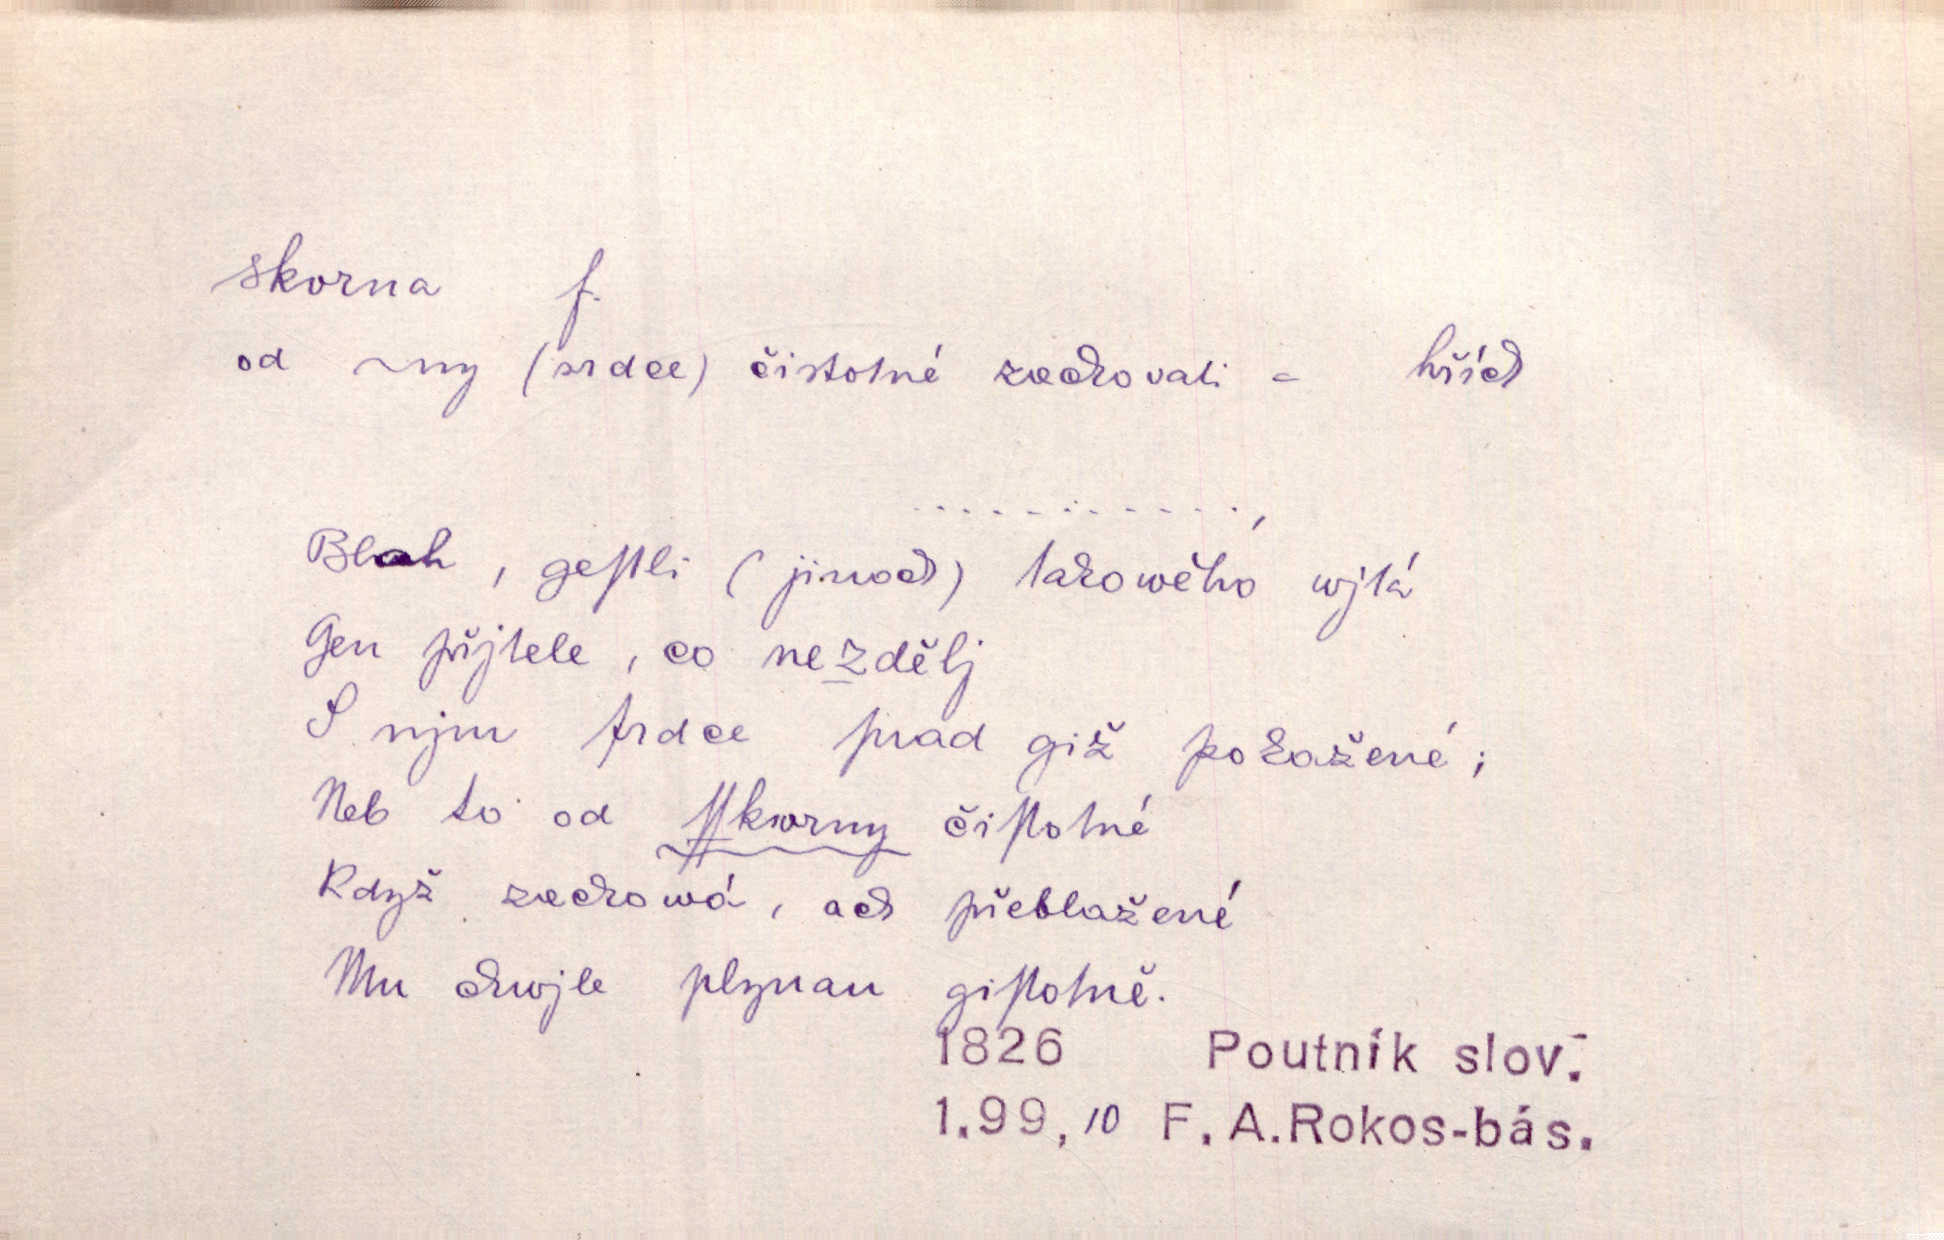 skorna f.
od ~ny (srdce) čistotné zachovati = hřích
. . . . . . . . . . . . ,
Blah, geſtli (jinoch) takowého wjtá
Gen přjtele, co nezdělj
S njm ſrdce ſnad giž pokažené;
Neb to od ſſkworny čiſtotné
Když zachowá, ach přeblažené
Mu chwjle plynau giſtotně.
1826 Poutník slov.
1.99, 10 F. A. Rokos-bás.